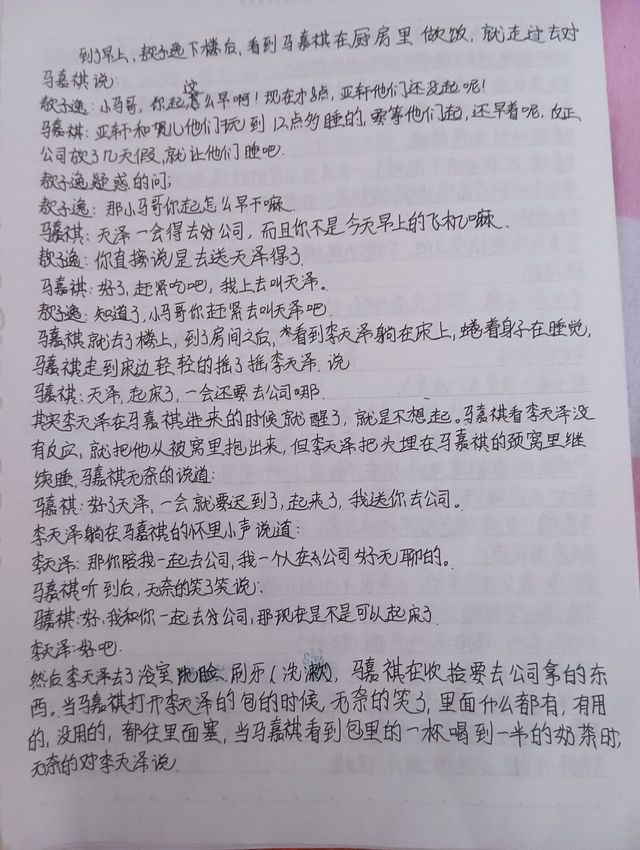 到了早上，敖子逸下楼后，看到马嘉祺在厨房里做饭，就走过去对
马嘉祺说：
敖子逸：小马哥，你起这么早啊！现在才8点，亚轩他们还没起呢！
马嘉祺：亚轩和贺儿他们玩到12点多睡的，要等他们起，还早着呢，反正
公司放了几天假，就让他们睡吧.
敖子逸疑惑的问；
敖子逸：那小马哥你起怎么早干嘛.
马嘉祺：天泽一会得去分公司，而且你不是今天早上的飞机嘛.
敖子逸：你直接说是去送天泽得了.
马嘉祺：好了，赶紧吃吧，我上去叫天泽。
敖子逸：知道了，小马哥你赶紧去叫天泽吧.
马嘉祺就去了楼上，到了房间之后，看到李天泽躺在床上，蜷着身子在睡觉，
马嘉祺走到床边轻轻的摇了摇李天泽.说
马嘉祺：天泽，起床了，一会还要去公司哪.
其实李天泽在马嘉祺进来的时候就醒了，就是不想起。马嘉祺看李天泽没
有反应，就把他从被窝里抱出来，但李天泽把头埋在马嘉祺的颈窝里继
续睡，马嘉祺无奈的说道：
马嘉祺：好了天泽，一会就要迟到了，起来了，我送你去公司。
李天泽躺在马嘉祺的怀里小声说道：
李天泽：那你陪我一起去公司，我一个人在公司好无聊的。
马嘉祺听到后，无奈的笑了笑说：
马嘉祺：好，我和你一起去分公司，那现在是不是可以起床了.
李天泽：好吧.
然后李天泽去了浴室洗脸.刷牙（洗漱），马嘉祺在收拾要去公司拿的东
西。当马嘉祺打开李天泽的包的时候，无奈的笑了，里面什么都有，有用
的，没用的，都往里面塞，当马嘉祺看到包里的一杯喝到一半的奶茶时，
无奈的对李天泽说.